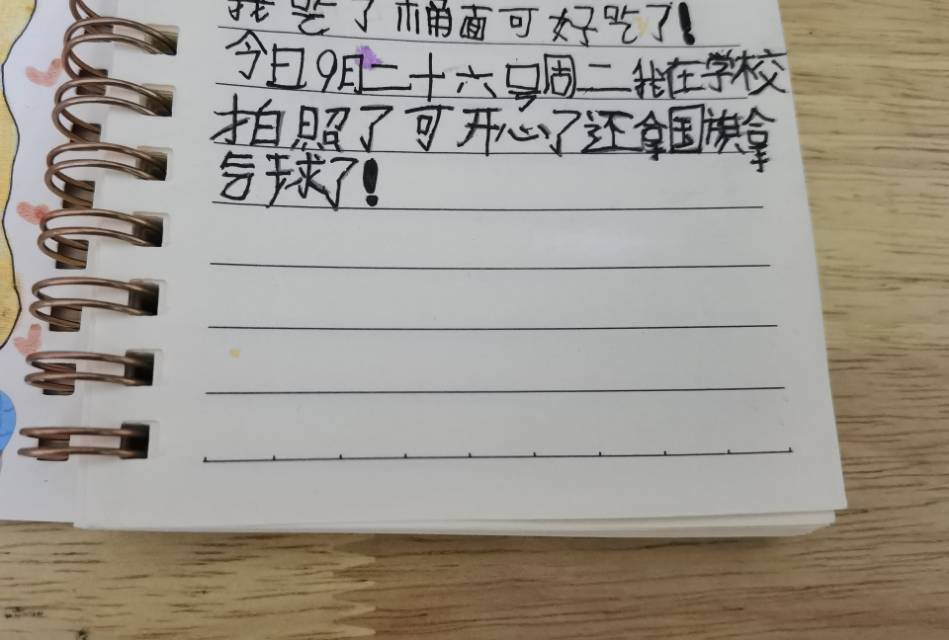 我吃了桶面可好吃了！
今日9日二十六号周二我在学校
拍照了可开心了还拿国旗拿
气球了！